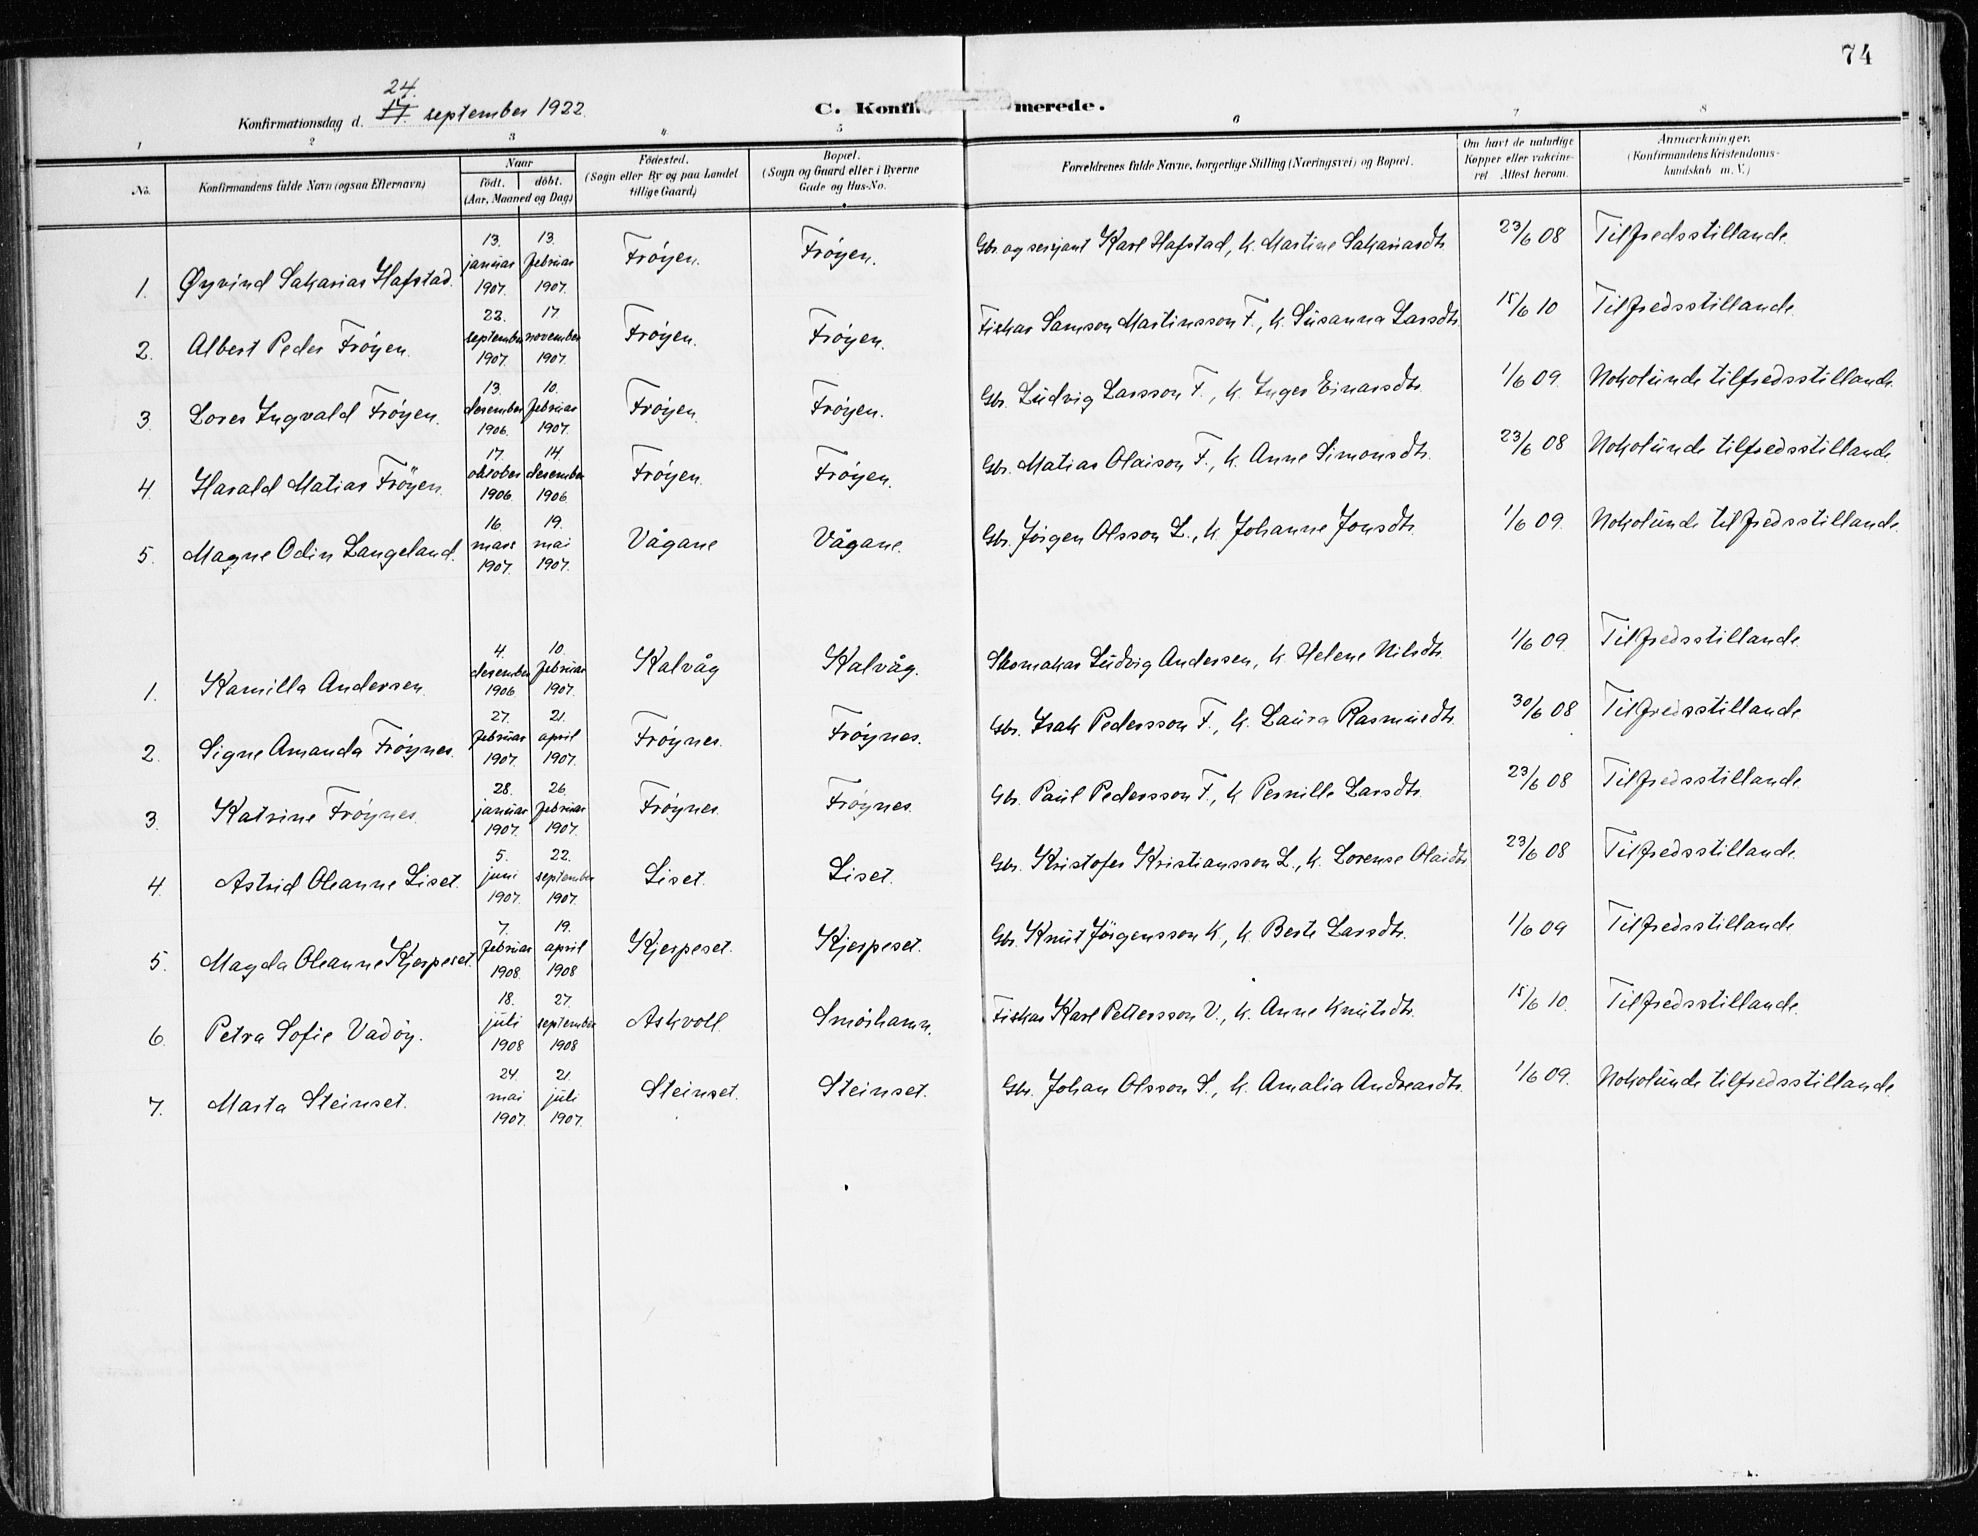 74
24.
Konfirmationsdag d. 17. september 1922.
C. Konfirmerede.
1 2 3 4 5 6 7 8
No.
Konfirmandens fulde Navn (ogsaa Efternavn)
Naar
födt. döbt.
(Aar, Maaned og Dag)
Födested.
(Sogn eller By og paa Landet
tillige Gaard)
Bopæl.
(Sogn og Gaard eller i Byerne
Gade og Hus-No.
Forældrenes fulde Navne, borgerlige Stilling (Næringsvei) og Bopæl.
Om havt de naturlige
Kopper eller vakcine-
ret. Attest herom.
Anmærkninger.
(Konfirmandens Kristendoms-
kundskab m. V.)
1. Øyvind Sakarias Hafstad. 13. januar 1907. 13. februar 1907. Frøyen. Frøyen. Gbr. og sersjant Karl Hafstad, k. Martine Sakariasdtr. 23/6 08 Tilfredsstillande.
2. Albert Peder Frøyen. 23. september 1907. 17. november 1907. Frøyen. Frøyen. Fiskar Samson Martinsson F., k. Susanna Larsdtr. 15/6 10 Tilfredsstillande.
3. Lores Ingvald Frøyen. 13. desember 1906. 10. februar 1907. Frøyen. Frøyen. Gbr. Ludvig Larsson F., k. Inger Einarsdtr. 1/6 09. Nokolunde tilfredsstillande.
4. Harald Matias Frøyen. 17. oktober 1906. 14. desember 1906. Frøyen. Frøyen. Gbr. Matias Olaison F., k. Anne Simonsdtr. 23/6 08 Nokolunde tilfredsstillande.
5. Magne Odin Langeland. 16. mars 1907. 19. mai 1907. Vågane Vågane. Gbr. Jörgen Olsson L., k. Johanne Jonsdtr. 1/6 09. Nokolunde tilfredsstillande.
1. Kamilla Andersen. 4. desember 1906 10. februar 1907. Kalvåg Kalvåg. Skomakar Ludvig Andersen, k. Helene Nilsdtr. 1/6 09. Tilfredsstillande.
2. Signe Amanda Frøynes. 27. februar 1907. 21. april 1907. Frøynes. Frøynes. Gbr. Isak Pedersson F., k. Laura Rasmusdtr. 30/6 08 Tilfredsstillande
3. Katrine Frøynes. 28. januar 1907. 26. februar 1907. Frøynes. Frøynes. Gbr. Paul Pedersson F., k. Pernille Larsdtr. 23/6 08 Tilfredsstillande.
4. Astrid Oleanne Liset. 5. juni 1907. 22. september 1907. Liset. Liset. Gbr. Kristofer Kristiansson L., k. Lorense Olaidtr. 23/6 08 Tilfredsstillande.
5. Magda Oleanne Kjerpeset. 7. februar 1908. 19. april 1908 Kjerpeset. Kjerpeset. Gbr. Knut Jørgensson K., k. Berte Larsdtr. 1/6 09 Tilfredsstillande
6. Petra Sofie Vadøy. 18. juli 1908 27. september 1908 Askvoll Smørhamn. Fiskar Karl Pettersson V., k. Anne Knutsdtr. 15/6 10. Tilfredsstillande.
7. Marta Steinset. 24. mai 1907. 21. juli 1907. Steinset. Steinset. Gbr. Johan Olsson S., k. Amalia Andreasdtr. 1/6 09. Nokolunde tilfredsstillande.